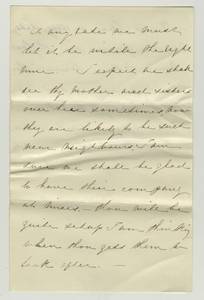 at any rate we must
let it be until the right
time. I expect we shall
see thy mother and sisters
over here sometimes now
they are likely to be such
near neighbours I am
sure we shall be glad
to have their company
at times. thou will be
quite set up I am thinking
when thou gets them to
look after. —